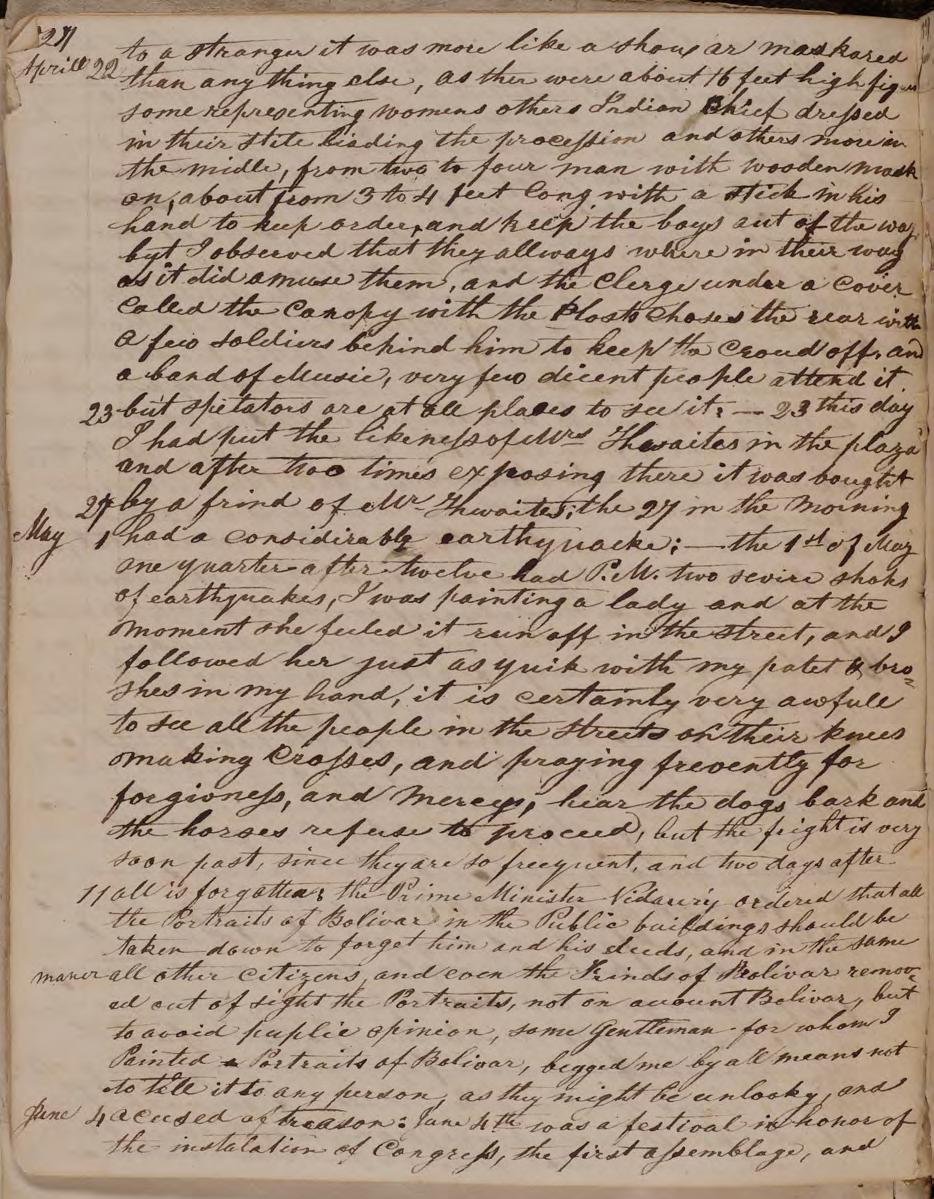 to a stranger it was more like a show ar maskared
Aprill 22 than any thing else, as ther were about 16 feet high figures
some representing womens others Indian Chief dressed
in their stile leading the procession and others more in
the midle, from two to four man with wooden mask
on, about from 3 to 4 feet long with a stick in his
hand to keep order, and keep the boys aut of the way
byt I observed that they allways where in their way
as it did amuse them, and the Clerge under a cover
called the Canopy with the Hosts choses the rear with
a few soldiers behind him to keep the Croud off, and
a band of Music, very few dicent people attend it.
23 but spetators are at all places to see it: — 23 this day
I had put the likeness of Mrs Thwaites in the plaza
and after two times exposing there it was bought
27 by a frind of Mr Thwaites; the 27 in the Morning
May 1 had a considerable earthyuacke: — the 1st of May
one yuarter after twelve had P.M. two sevire shoks
of earthyuakes, I was painting a lady and at the
moment she feeled it run off in the street, and I
followed her just as yuik with my palet & bro=
shes in my hand, it is certainly very awfull
to see all the people in the streets on their knees
making Crosses, and praying frevently for
forgivness, and Mercys, hear the dogs bark and
the horses refuse to proceed, but the fright is very
soon past, since they are so freeyuent, and two days after
11 all is forgotten; the Prime Minister Vidaury ordered that all
the Portraits of Bolivar in the Public buildings should be
taken down to forget him and his deeds, and in the same
maner all other Citizens, and even the Frinds of Bolivar remov=
ed out of sight the Portraits, not on acuount Bolivar, but
to avoid puplic opinion, some Gentleman for whom I
Painted a Portraits of Bolivar, begged me by all means not
to tell it to any person, as they might be unlooky, and
June 4 acused of treason: June 4th was a festival in honor of
the instalation of Congress, the first assemblage, and